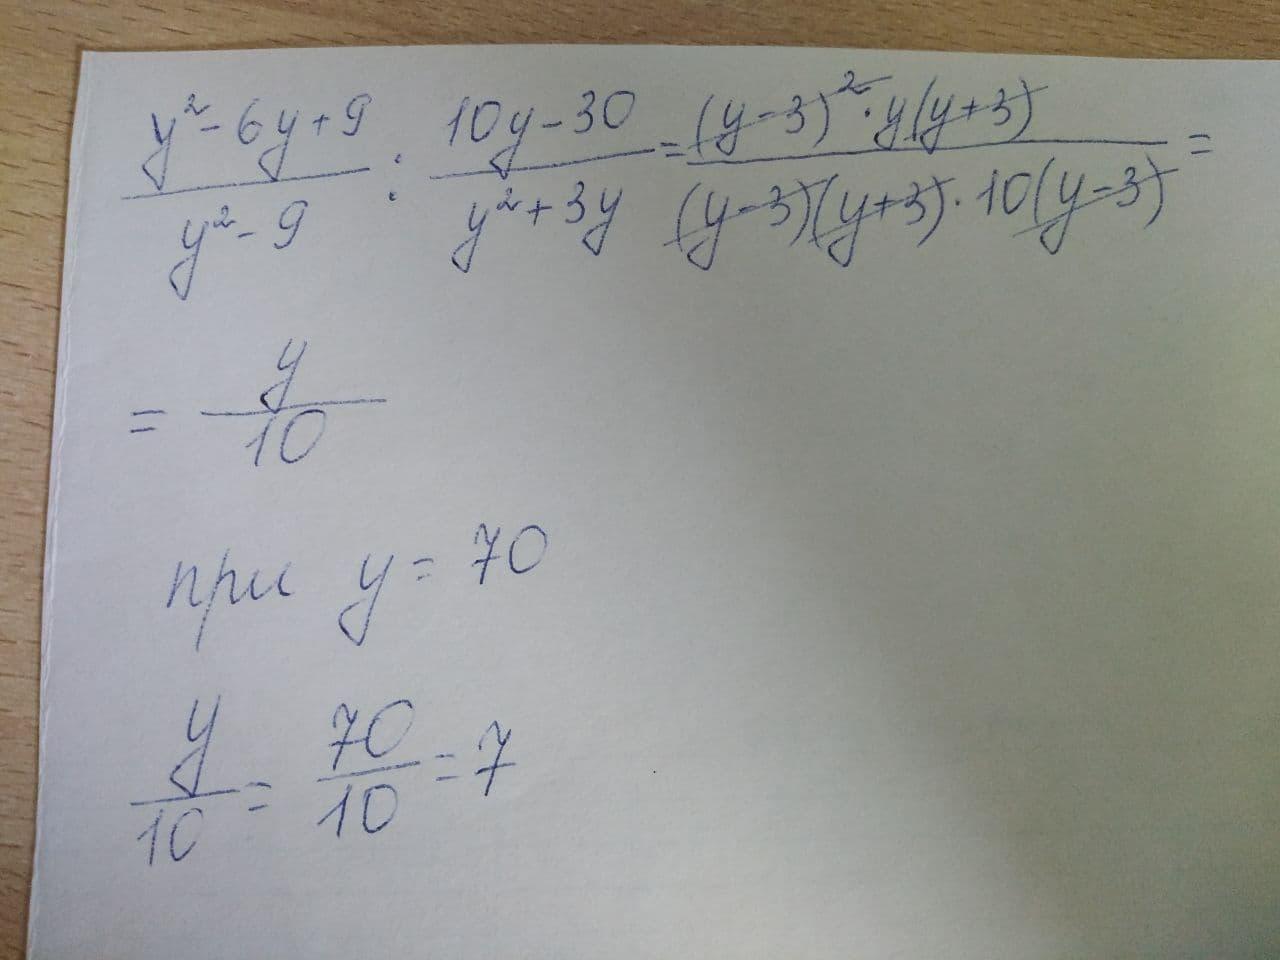 (y²-6y+9)/(y²-9) : (10y-30)/(y²+3y) = ((y-3)²·y(y+3))/((y-3)(y+3)·10(y-3)) =
= y/10
при y = 70
y/10 = 70/10 = 7